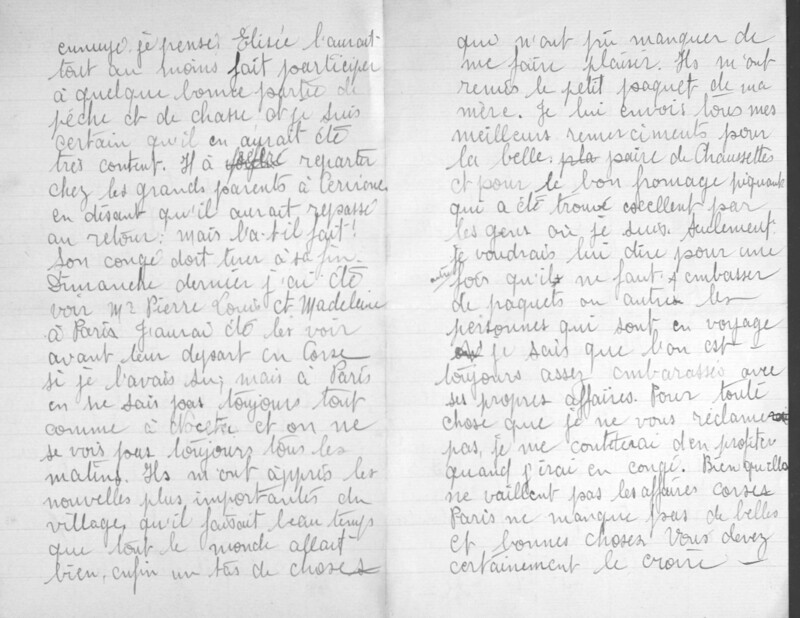 ennuyé je pense, Elisée l'aurait
tout au moins fait participer
à quelque bonne partie de
pêche et de chasse et je suis
certain qu'il en aurait été
très content. Il à reparter
chez les grands parents à Cervione
en disant qu'il aurait repassé
au retour; mais l'a-t-il fait!
Son congé doit tirer à sa fin.
Dimanche dernier j'ai été
voir Mr Pierre Louis et Madeleine
à Paris j'aurai été les voir
avant leur depart en Corse
si je l'avais su; mais à Paris
en ne sais pas toujours tout
comme à et on ne
se vois pas toujours tous les
matins. Ils m'ont appris les
nouvelles plus importantes du
village, qu'il faisait beau temps
que tout le monde allait
bien, enfin un tas de choses
que n'ont pû manquer de
me faire plaisir. Ils m'ont
remis le petit paquet de ma
mère. Je lui envois tous mes
meilleurs remerciments pour
la belle paire de Chaussettes
et pour le bon fromage piquant
qui a été trouvé excellent par
les gens où je suis. Seulement
je voudrais lui dire pour une
fois qu'il ne faut embasser
de paquets ou autres les
personnes qui sont en voyage
je sais que l'on est
toujours assez embarassés avec
ses propres affaires. Pour toute
chose que je ne vous réclame
pas, je me contiterai d'en profiter
quand j'irai en congé. Bien qu'elles
ne vaillent pas les affaires corses
Paris ne manque pas de belles
et bonnes choses. Vous devez
certainement le croire —